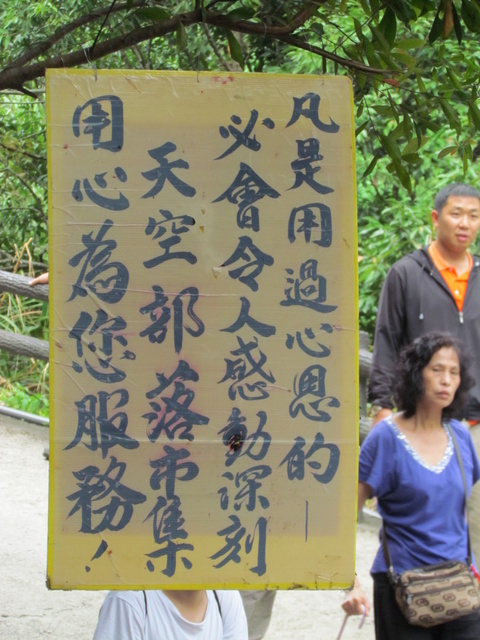 凡是用過心思的—
必會令人感動深刻
天空部落市集
用心為您服務！